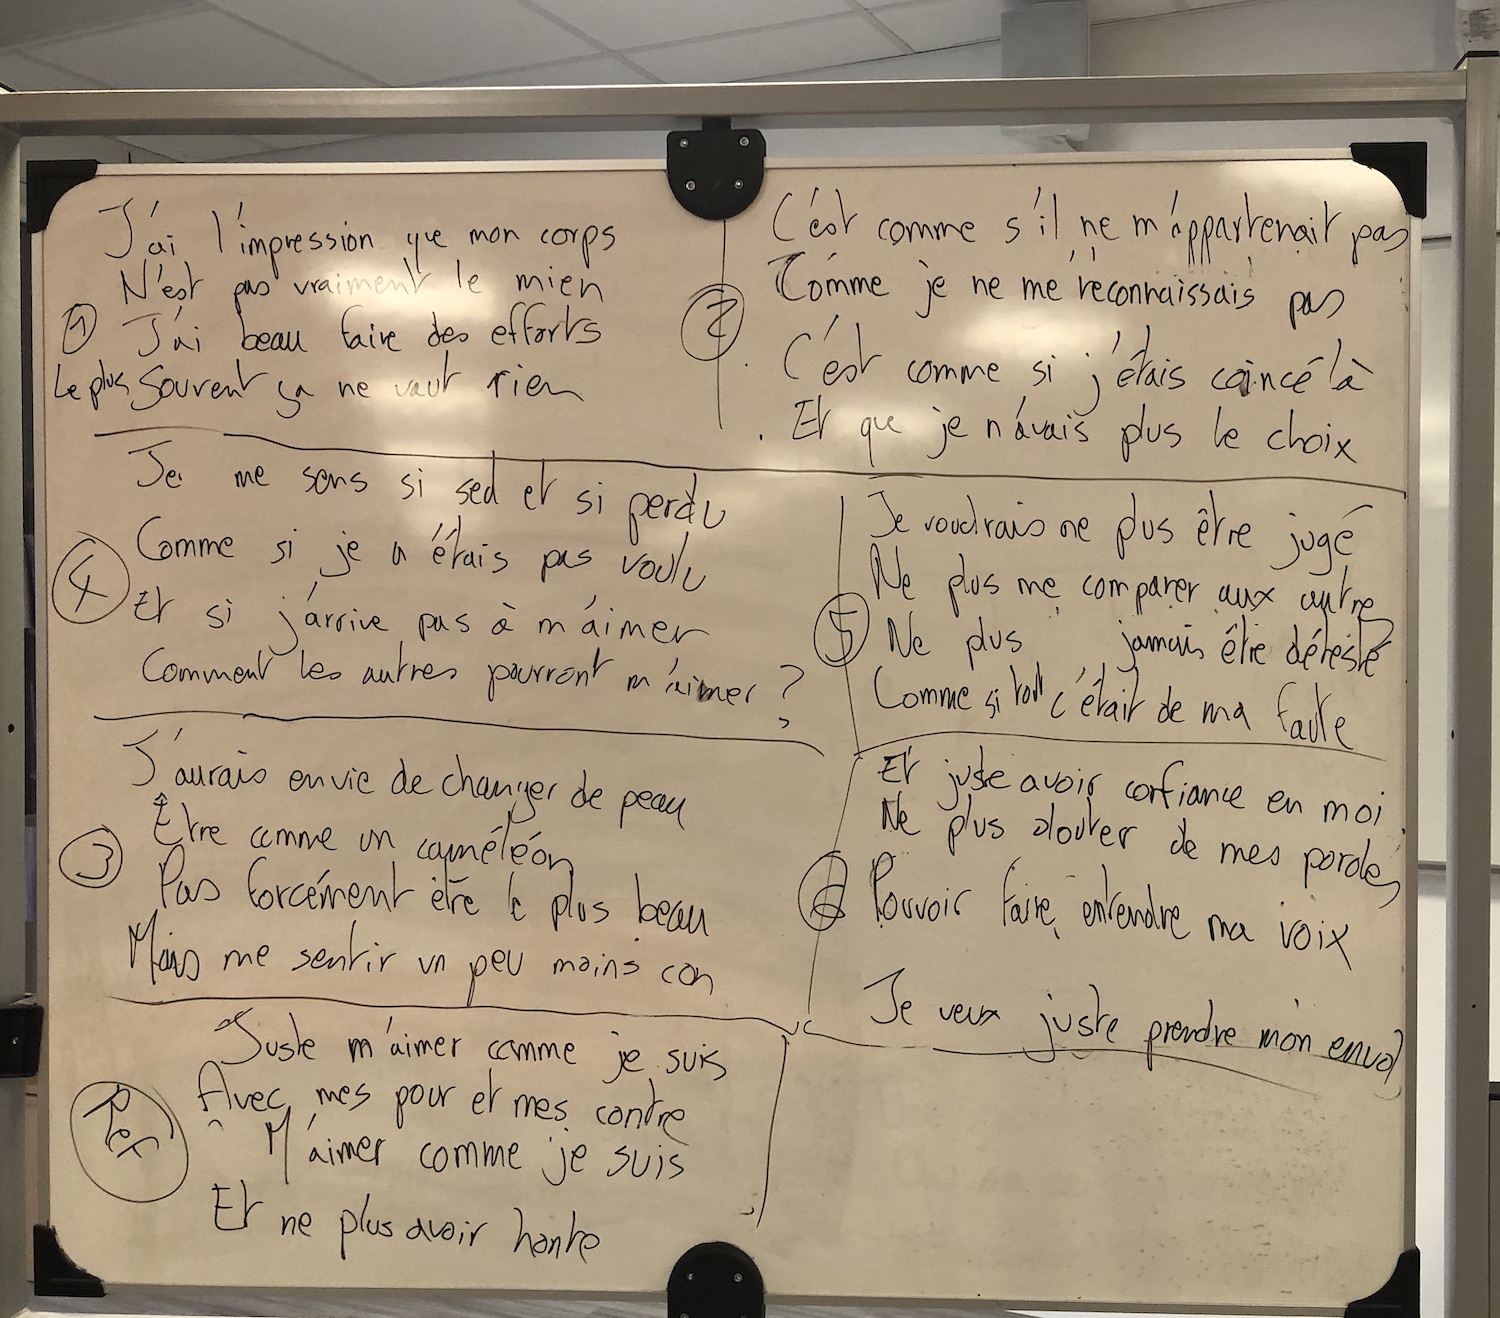 ①
J'ai l'impression que mon corps
N'est pas vraiment le mien
J'ai beau faire des efforts
Le plus souvent ça ne vaut rien
②
C'est comme s'il ne m'appartenait pas
Comme je ne me reconnaissais pas
C'est comme si j'étais coincé là
Et que je n'avais plus le choix
④
Je me sens si seul et si perdu
Comme si je n'étais pas voulu
Et si j'arrive pas à m'aimer
Comment les autres pourront m'aimer ?
⑤
Je voudrais ne plus être jugé
Ne plus me comparer aux autres
Ne plus jamais être détesté
Comme si tout c'était de ma faute
③
J'aurais envie de changer de peau
Être comme un caméléon
Pas forcément être le plus beau
Mais me sentir un peu moins con
⑥
Et juste avoir confiance en moi
Ne plus douter de mes paroles
Pouvoir faire entendre ma voix
Je veux juste prendre mon envol
Ref
Juste m'aimer comme je suis
Avec mes pour et mes contre
M'aimer comme je suis
Et ne plus avoir honte